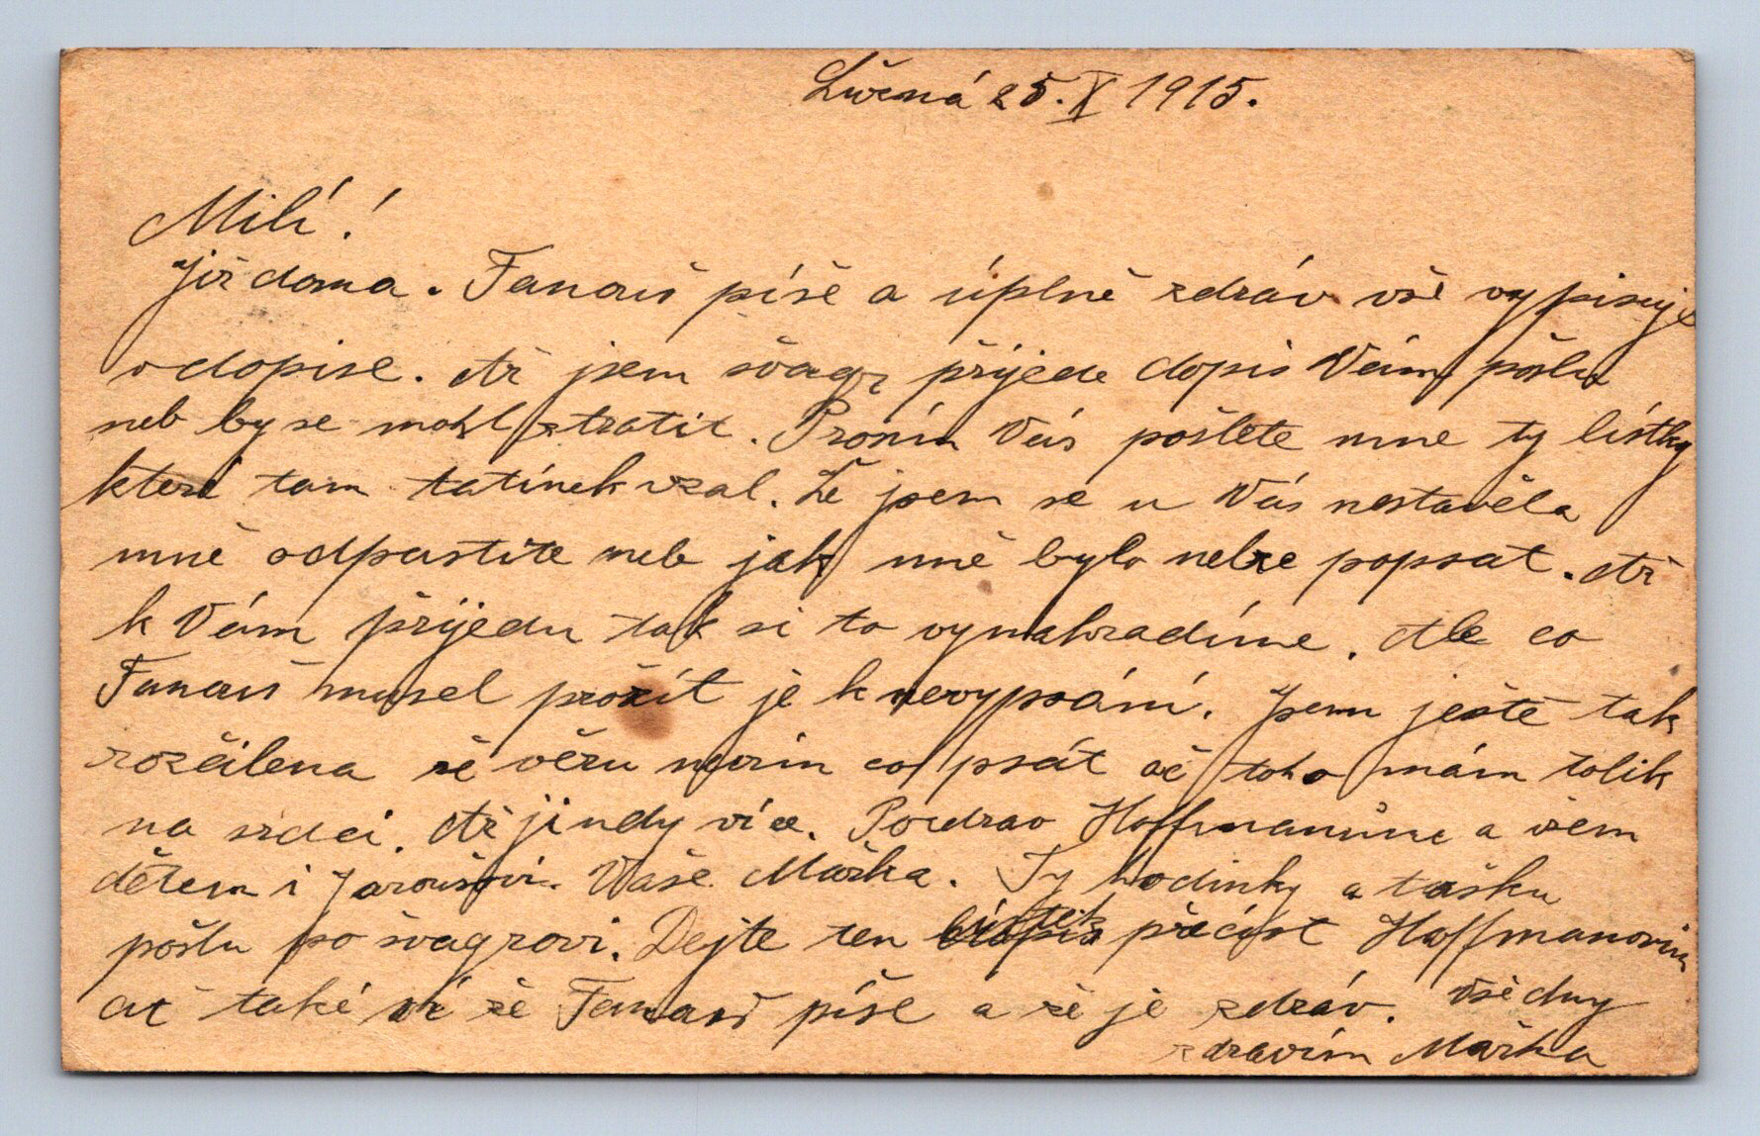 Lužná 25. X 1915.
Milí!
Již doma. Fanouš píšě a úplně zdráv vše vypisuje
v dopise. Až jsem švagr přijede dopis Vám pošlu
neb by se mohl ztratit. Prosím Vás pošlete mne ty lístky
které tam tatínek vzal. Že jsem se u Vás nestavěla
mně odpustite neb jak mně bylo nelze popsat. Až
k Vám přijedu tak si to vynahradíme. Ale co
Fanouš musel prožít je k nevypsání. Jsem ještě tak
rozčilena že věru nevím co psát ač toho mám tolik
na srdci. Až jindy více. Pozdrav Hoffmanům a všem
dětem i Jaroušovi. Vaše Mařka. Ty hodinky a tašku
pošlu po švagrovi. Dejte ten lístek přečíst Hoffmanovim
ať také ví že Fanouš píše a že je zdráv. Všedny
zdravím Mařka